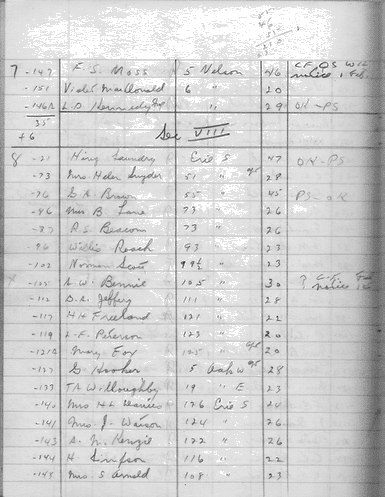 7 -147 F. S. Moss 5 Nelson 46
-151 Violet MacDonald 6 " 20
-146A L.D. Kennedy " 29 OK-PS
35
+6 Sec VIII
8 -51 King Laundry Erie S 47 OK-PS
-73 Mrs. Helen Snyder 51 " 28
-76 G.A. Brown 55 " 45 PS-OK
-86 Mrs B Lane 73 " 26
-87 R.S. Beacom 73 " 26
-96 Willis Roach 93 " 23
-102 Norman Scott 99½ " 23
-105 A.W. Bennie 105 " 30 ?
-112 D.A. Jeffery 111 " 28
-117 H H Freeland 121 " 22
-119 L.F. Peterson 123 " 20
-121A Mary Fox 105 " 20
-127 G. Hooker 5 Oak W 28
-133 T.A Willoughby 19 " E 23
-140 Mrs H L 126 Erie S
-141 Mrs. J. Watson 124 " 26
-143 A. McKenzie 122 " 26
-144 H Simpson 116 " 22
-148 Mrs S Arnold 108 " 23